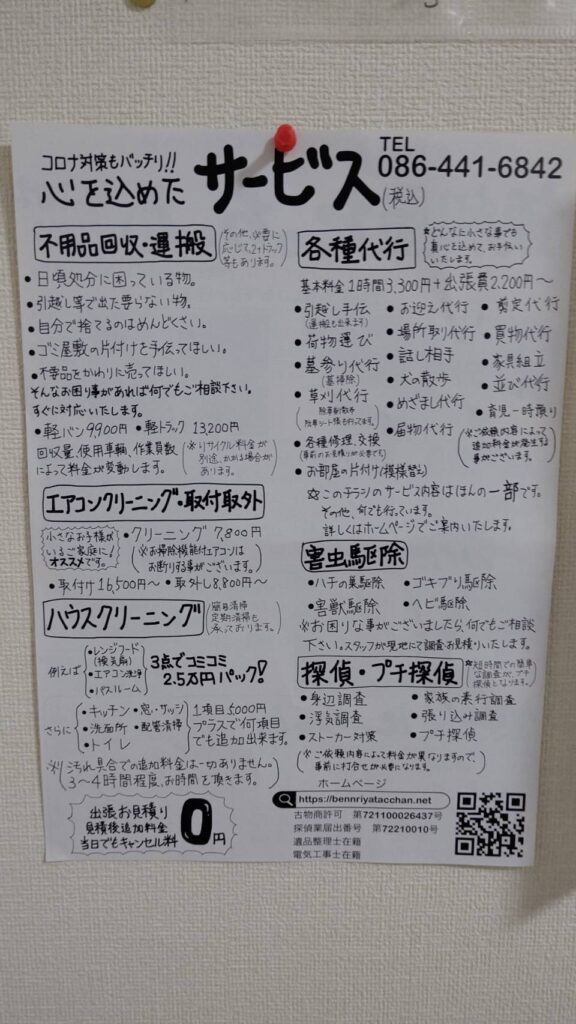 コロナ対策もバッチリ!!
心を込めた サービス
TEL
086-441-6842
(税込)
不用品回収・運搬
(その他、必要に
応じて、2tトラック
等もあります。)
・日頃処分に困っている物。
・引越し等で出た要らない物。
・自分で捨てるのはめんどくさい。
・ゴミ屋敷の片付けを手伝ってほしい。
・不要品をかわりに売ってほしい。
そんなお困り事があれば何でもご相談下さい。
すぐに対応いたします。
・軽バン 9,900円 ・軽トラック 13,200円
回収量、使用車輌、作業員数
によって料金が変動します。
(※リサイクル料金が
別途、かかる場合が
あります。)
エアコンクリーニング・取付取外
小さなお子様が
いるご家庭に!
オススメです。
・クリーニング 7,800円
(※お掃除機能付エアコンは
お断りする事がございます。)
・取付け 16,500円〜 ・取外し 8,800円〜
ハウスクリーニング
(空室清掃
定期清掃も
承っております。)
例えば
・レンジフード
(換気扇)
・エアコン洗浄
・バスルーム
3点でコミコミ
2.5万円パック!
さらに
・キッチン ・窓・サッシ
・洗面所 ・配管清掃
・トイレ
1項目5,000円
プラスで何項目
でも追加出来ます。
※(汚れ具合での追加料金は一切ありません。
3〜4時間程度、お時間を頂きます。)
出張お見積り
見積後追加料金
当日でもキャンセル料
0円
各種代行
★どんなに小さな事でも
真心を込めて、お手伝い
いたします。
基本料金1時間3,300円+出張費2,200円〜
・引越し手伝
(運搬も出来ます)
・荷物運び
・墓参り代行
(墓掃除)
・草刈代行
(除草剤散布
防草シート張も行ってます。)
・各種修理、交換
(事前のお見積りが必要です)
・お部屋の片付け(模様替も)
・お迎え代行
・場所取り代行
・話し相手
・犬の散歩
・めざまし代行
・届物代行
・剪定代行
・買物代行
・家具組立
・並び代行
・育児一時預り
(※ご依頼内容によって
追加料金が発生する
事がございます。)
☆このチラシのサービス内容はほんの一部です。
その他、何でも行っています。
詳しくはホームページでご案内いたします。
害虫駆除
・ハチの巣駆除 ・ゴキブリ駆除
・害獣駆除 ・ヘビ駆除
※お困りな事がございましたら、何でもご相談
下さい。スタッフが現地にて調査お見積りいたします。
探偵・プチ探偵
★短時間での簡単
な調査が、プチ
探偵となります。
・身辺調査 ・家族の素行調査
・浮気調査 ・張り込み調査
・ストーカー対策 ・プチ探偵
(※ご依頼内容によって料金が異なりますので、
事前に打合せが必要になります。)
ホームページ
https://bennriyatacchan.net
古物商許可 第721100026437号
探偵業届出番号 第72210010号
遺品整理士在籍
電気工事士在籍